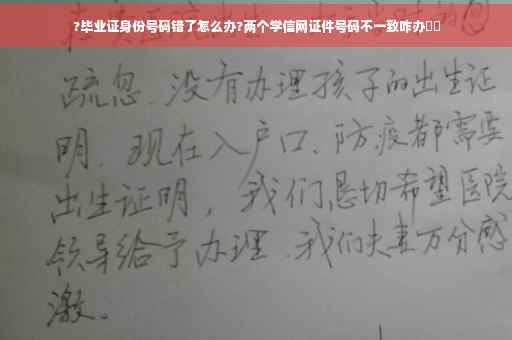 ?毕业证身份号码错了怎么办?两个学信网证件号码不一致咋办
疏忽、没有办理孩子的出生证
明、现在入户口、防疫都需要
出生证明，我们恳切希望医院
领导给予办理、我们夫妻万分感
激。